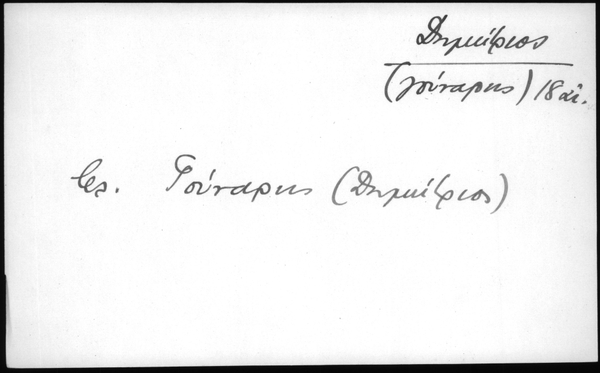 Δημήτριος
(γούναρης) 18 αἰ.
Γούναρης (Δημήτριος)